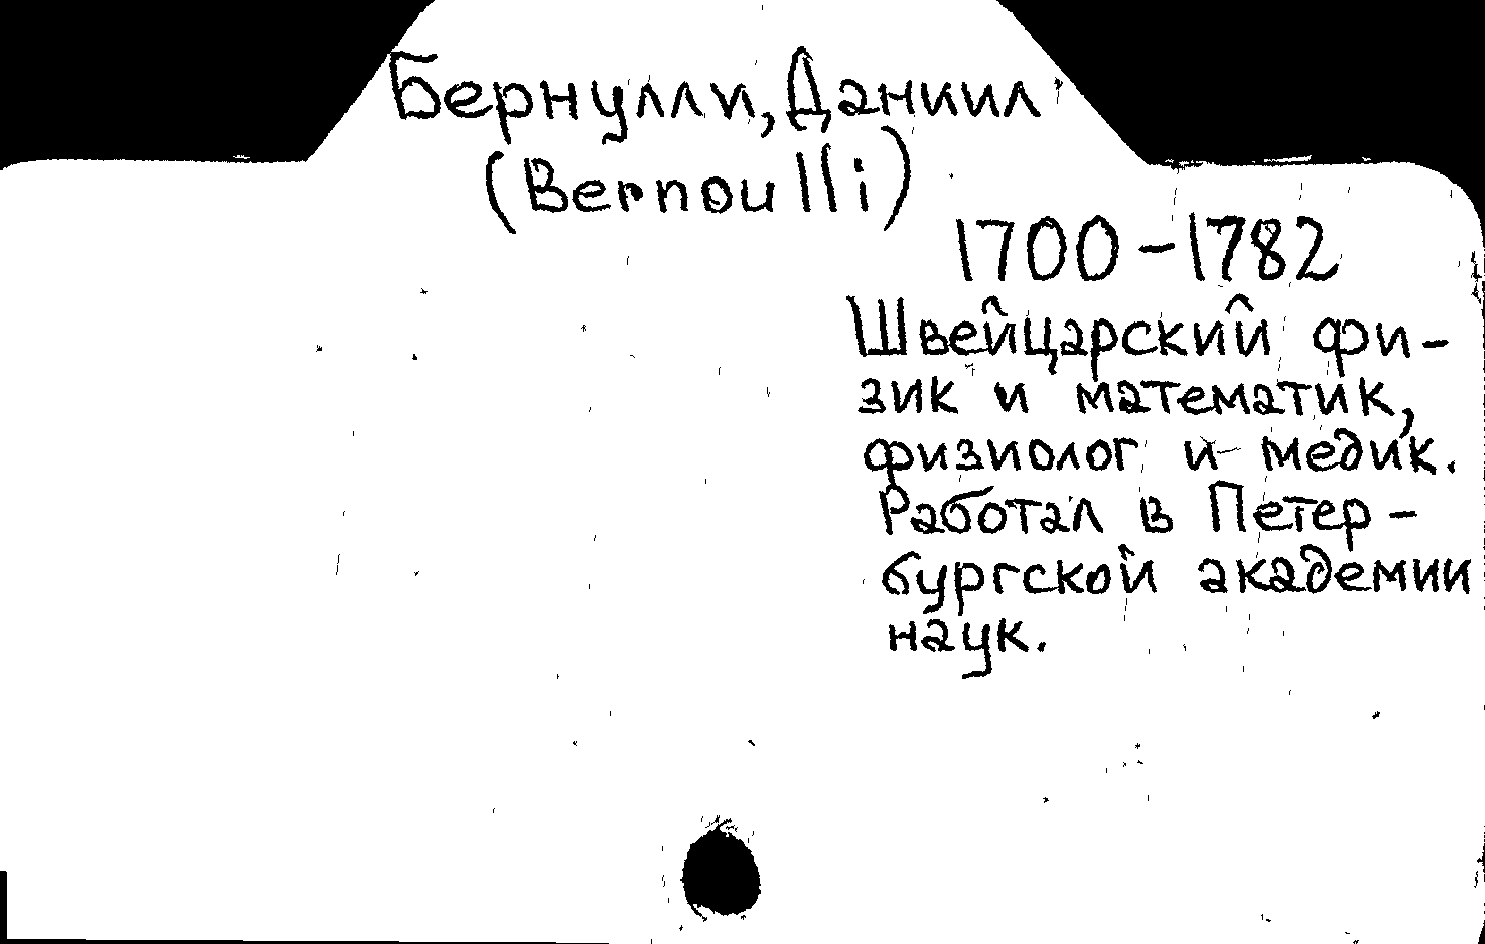 Бернулли, Даниил
(Bernoulli)
1700-1782
Швейцарский фи-
зик и математик,
физиолог и медик.
Работал в Петер-
бургской академии
наук.